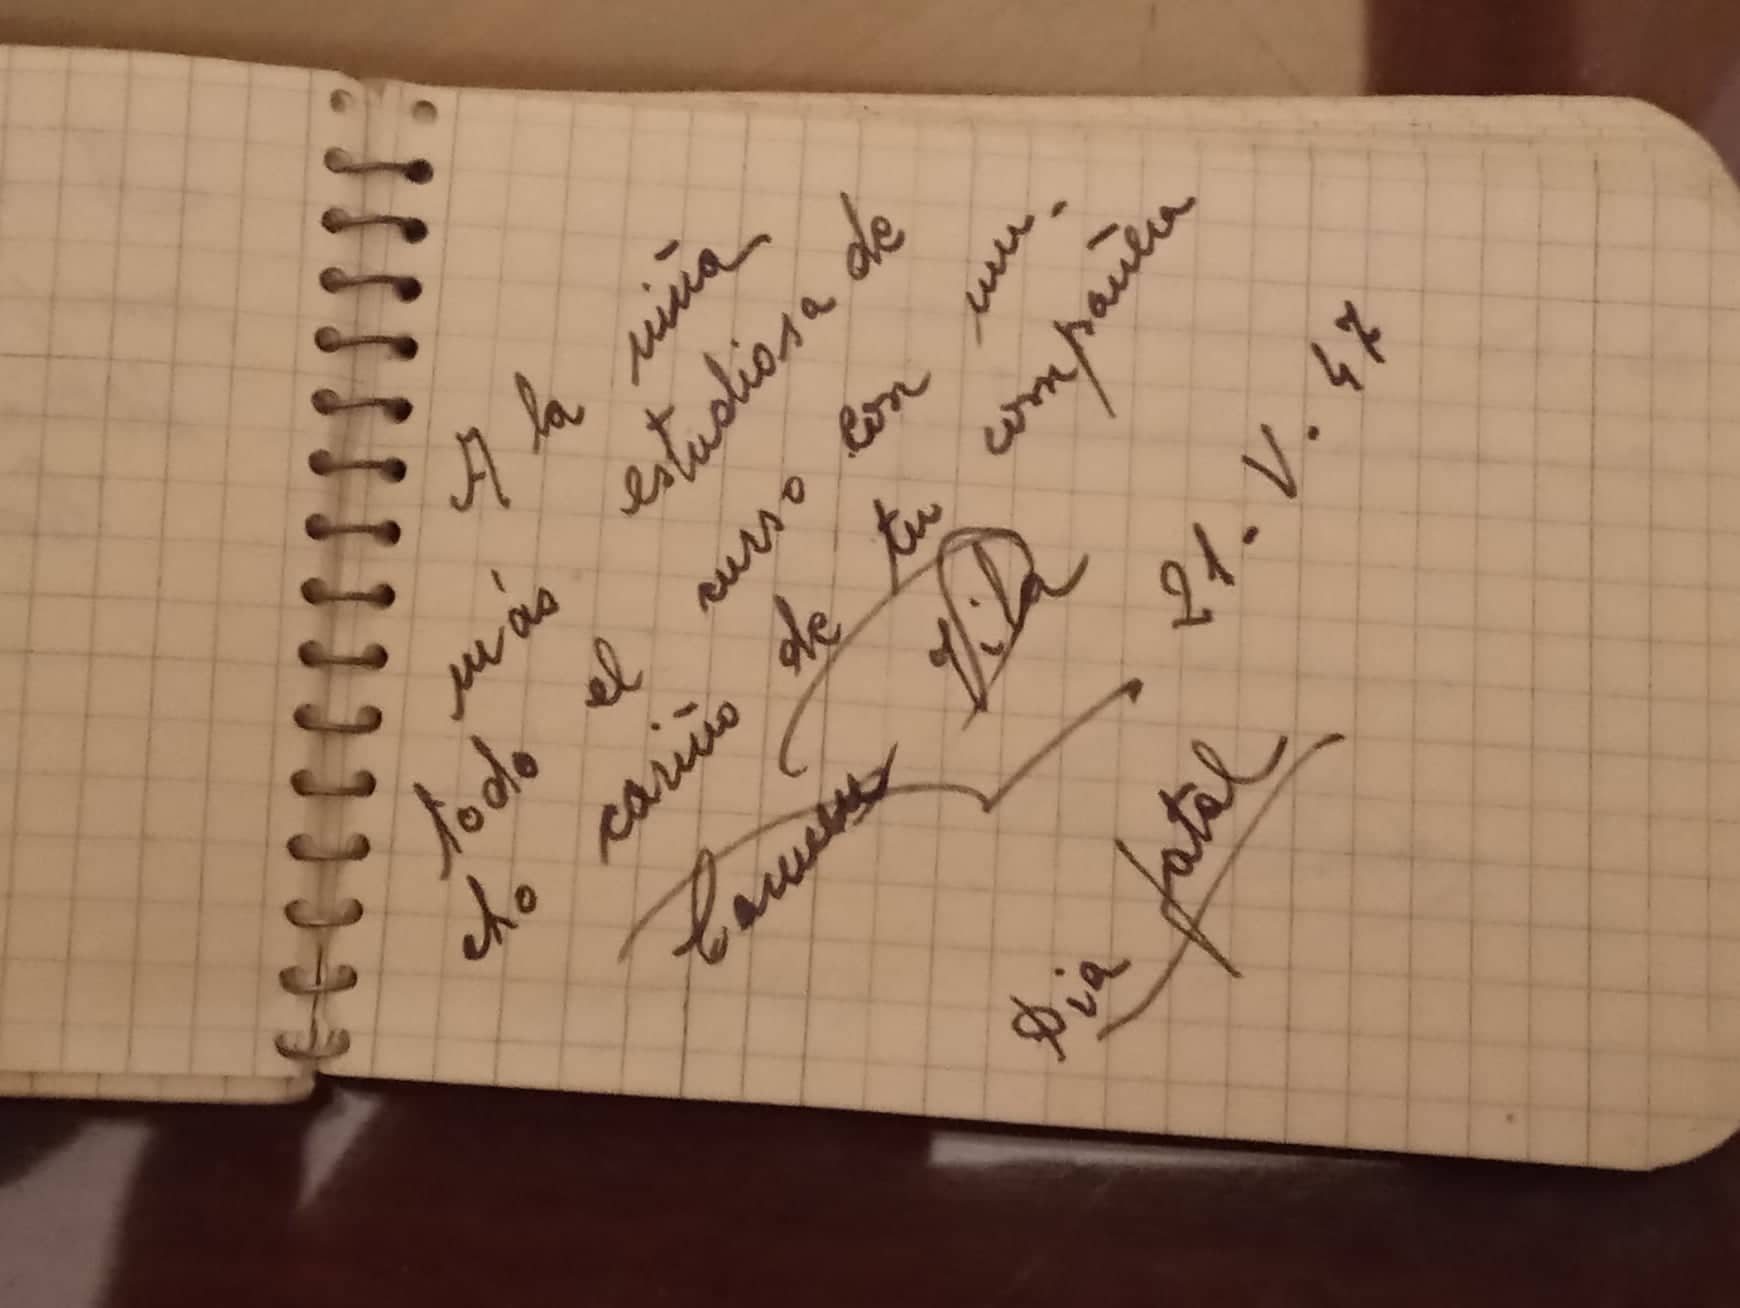 A la niña
más estudiosa de
todo el curso con mu-
cho cariño de tu compañera
Carmen Vila
21. V. 47
Dia fatal